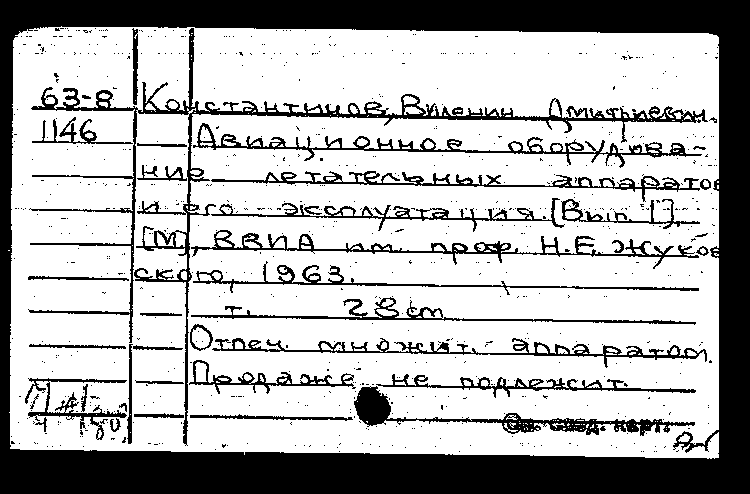 63-8 Константинов, Виленин Дмитриевич.
1146 Авиационное оборудова-
ние летательных аппаратов
и его эксплуатация. [Вып. 1].
[М], ВВИА им. проф. Н.Е. Жуков
ского, 1963.
т. 28 cm
Отпеч. множит. аппаратом.
Продаже не подлежит.
См. след. карт.